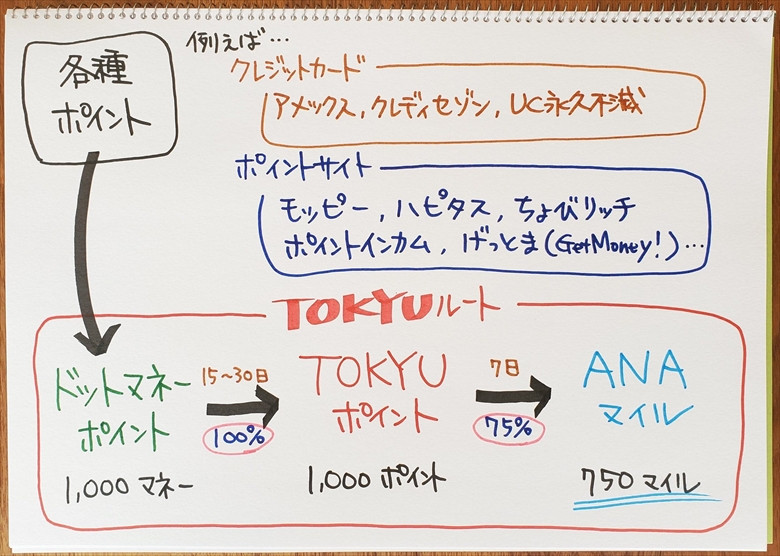 各種
ポイント
例えば…
クレジットカード
アメックス, クレディセゾン, UC永久不滅
ポイントサイト
モッピー, ハピタス, ちょびリッチ
ポイントインカム, げっとま(GetMoney!)…
TOKYUルート
ドットマネー
ポイント
1,000 マネー
15~30日
100%
TOKYU
ポイント
1,000 ポイント
7日
75%
ANA
マイル
750 マイル